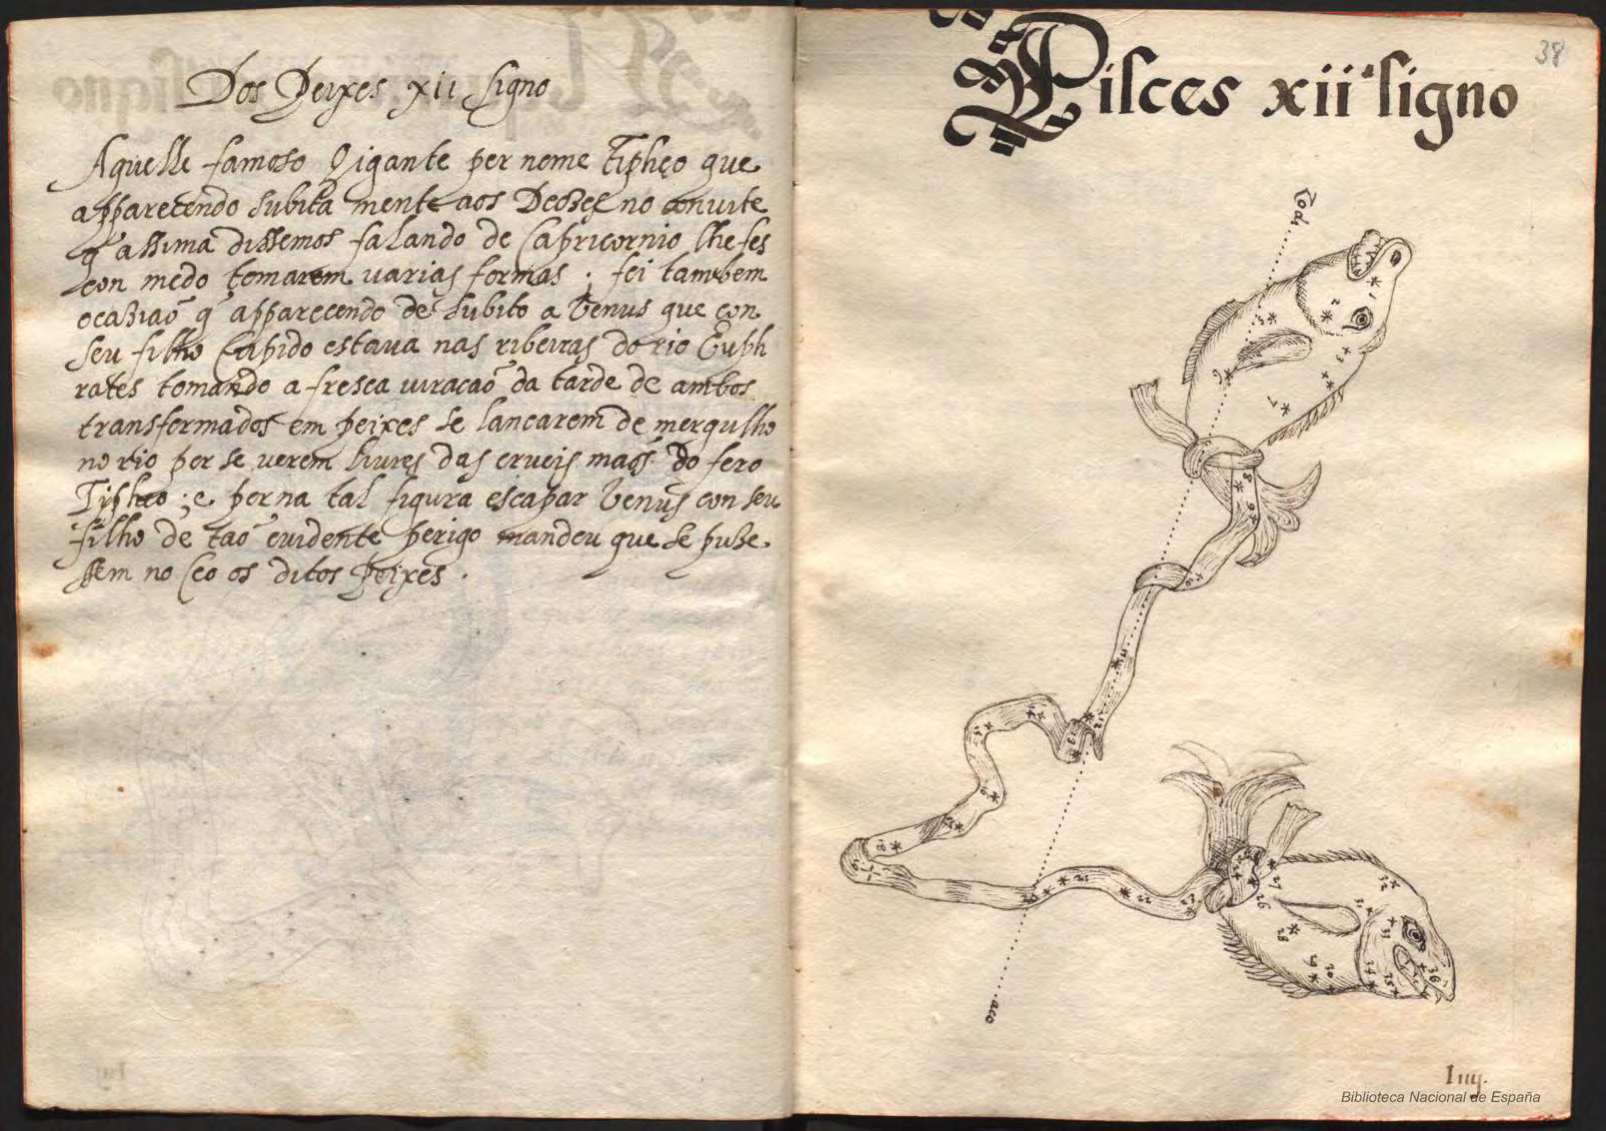 Dos Peixes xii signo
Aquelle famoso Gigante por nome Tipheo que
apparecendo subita mente aos Deoses no convite
q̃ assima dissemos falando de Capricornio lhe fes
con medo tomarem varias formas ; foi tambem
ocaziaõ q̃ apparecendo de subito a Venus que con
seu filho Cupido estava nas ribeiras do rio Euph
rates tomando a fresca viracaõ da tarde de ambos
transformados em peixes se lancarem de mergulho
no rio por se verem livres das crueis maõs do fero
Typheo ; e por na tal figura escapar Venus con seu
filho de taõ evidente perigo mandou que se puze
ssem no Ceo os ditos Peixes .
38
Pisces xii signo
Zodi
aco
Iiiij.
Biblioteca Nacional de España